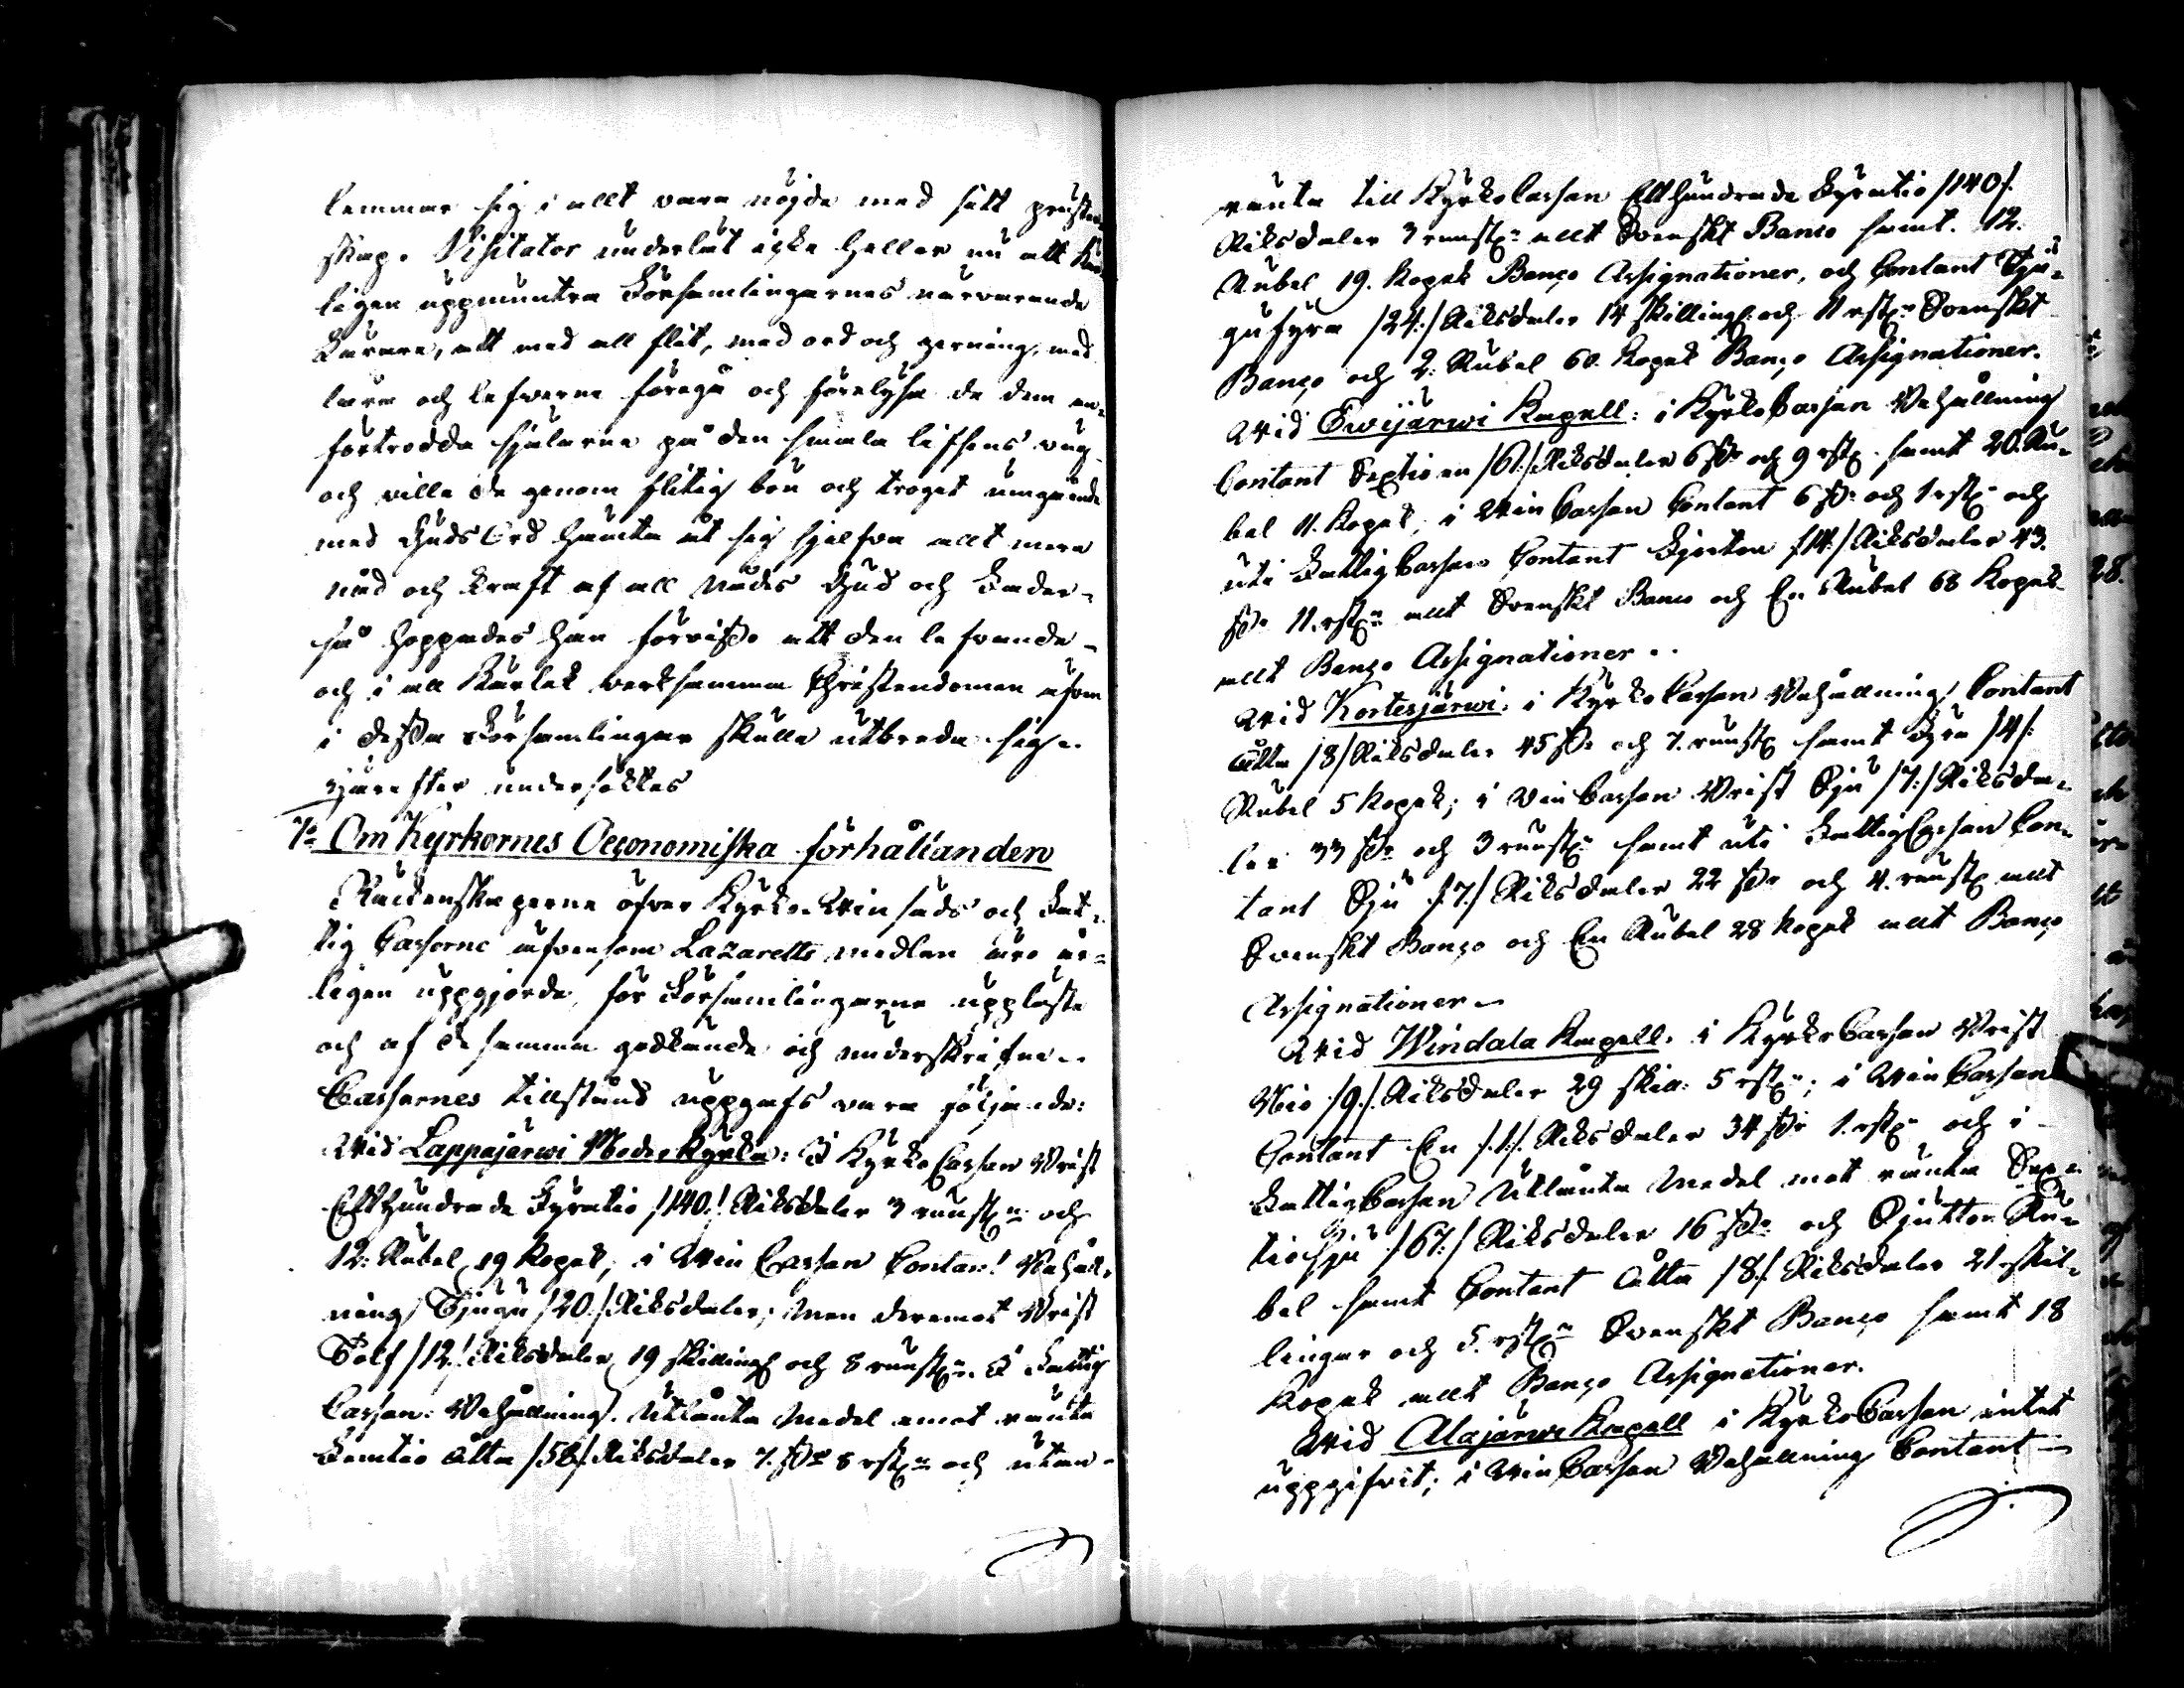 lemmar sig i allt vara nöjde med sitt prester-
skap. Visitator underlät icke heller nu att kär-
ligen uppmuntra Församlingarnes närvarande
Lärare, att med all flit, med ord och gerning, med
lära och lefverne föregå och förelysa de dem an-
förtrodda själarne på den smala lifsens väg
och ville de genom flitig bön och troget umgående
med Guds Ord hämta åt sig sjelfva allt mera
nåd och kraft af all nåds Gud och Fader -
så hoppades han förvisso att den lefvande -
och i all Kärlek verksamma Christendomen äfven
i dessa Församlingar skulle utbreda sig.
Härefter undersöktes
7o Om Kyrkornes Oeconomiska förhållanden
Räckenskaperne öfver Kyrko- Win säds och Fat-
tig Cassorne äfvensom Lazaretts medlen äro år-
ligen uppgjorde, för Församlingarne uppläste
och af desamma godkände och underskrifne.
Cassornes tillstånd uppgafs vara följande:
Wid Lappajärwi Moderkyrka: I Kyrko Cassan Brist
Etthundrade Fyratio /140./ Riksdaler 3 runst: och
12: Rubel 19 Kopek, i Win Cassan Contant Behåll-
ning Tjugu /20./ Riksdaler; men deremot Brist
Tolf /12./ Riksdaler 19 skilling och 8 runst:. I Fattig
Cassan: Behållning. Utlånte Medel emot ränta
Femtio åtta /58/ Riksdaler 7. sk: 8 rst: och utan
ränta till Kyrko Cassan Etthundrade Fyratio /140/.
Riksdaler 3 runst: allt Svenskt Banco samt. 12.
Rubel 19. Kopek Banco Assignationer, och Contant Tju-
gufyra /24:/ Riksdaler 14 skilling: och 11 rst: Svenskt
Banco och 2: Rubel 60. Kopek Banco Assignationer.
Wid Ewijärwi Kapell: i Kyrko Cassan Behållning
Contant Sextioen /61/ Riksdaler 6 sk: och 9 rst: samt 20. Ru-
bel 11. Kopek, i Win Cassan Contant 6 sk: och 1 rst: och
uti Fattig Cassan Contant Fjorton /14:/ Riksdaler 43.
sk: 11. rst: allt Svenskt Banco och En Rubel 68 Kopek
allt Banco Assignationer.
Wid Kortesjärwi: i Kyrko Cassan Behållning Contant
åtta /8/ Riksdaler 45 sk: och 7. runst: samt Fyra /4/:
Rubel 5 Kopek; i Win Cassan Brist Sju /7:/ Riksda-
ler 33 sk: och 3 runst: samt uti Fattig Cassan Con-
tant Sju /7./ Riksdaler 22 sk: och 4. runst: allt
Svenskt Banco och En Rubel 28 Kopek allt Banco
Assignationer.
Wid Windala Kapell: i Kyrko Cassan Brist
Nio /9./ Riksdaler 29 skill: 5 rst:; i Win Cassan
Contant En /1:/ Riksdaler 34 sk: 1. rst: och i
Fattig Cassan Utlånte Medel mot ränta Sex-
tiosju /67:/ Riksdaler 16 sk: och Sjutton Ru-
bel samt Contant åtta /8/. Riksdaler 21 skil-
lingar och 5. rst: Svenskt Banco samt 18
Kopek allt Banco Assignationer.
Wid Alajärwi Kapell i Kyrko Cassan intet
uppgifvit; i Win Cassan Behållning Contant